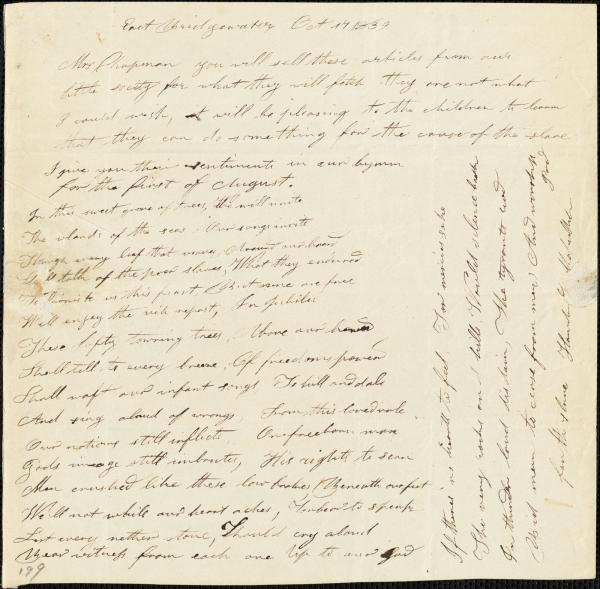 East Bridgewater Oct 14 1839
Mrs Chapman you will sell these articles from our
little society for what they will fetch they are not what
I could wish, it will be pleasing to the children to learn
that they can do something for the cause of the slave
I give you their sentiments in our hymn
for the first of August.
In this sweet grove of trees, We will unite
The islands of the seas Our songs invite
Though every leaf that waves, Around our
Will talk of the poor slaves, What they endured
To unite in this feast, But since are free
Will enjoy the rich repast, In jubilee
These lofty towring trees, Above our heads
Shall tell to every breeze, Of freedoms power
Shall waft our infant songs To hill and dale
And sing aloud of wrongs, From this loved vale.
Our nations still inflicts On freeborn man
Gods image still imbrutes, His rights to scan
Man crushed like these low Beneath our feet
We'll not while our heart aches, Forbear to speak
Lest every nether stone, Should cry aloud
Bear witness from each one Up to our God
If theres no heart to feel For mercies sake
The very rocks and hills Would silence break
In thunder loud disdain, The tyrants nod
Bid men to cease from man And worship
God
for the slave Hannah
199